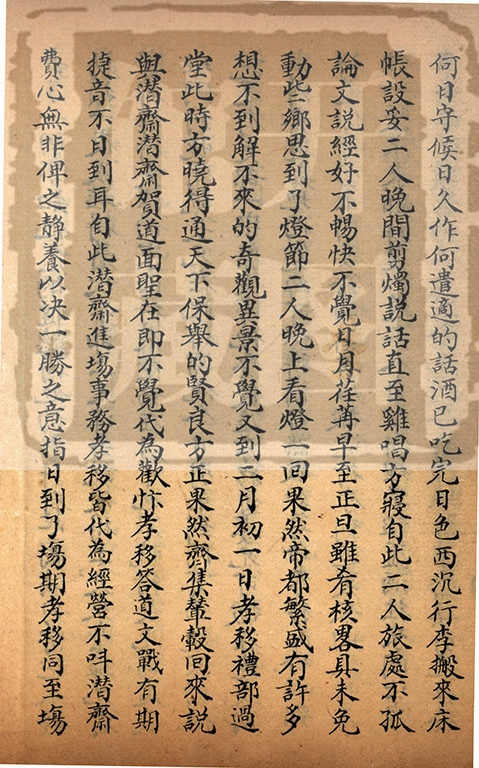 何日守候日久作何遣適的話酒已吃完日色西沉行李搬來床
帳設妥二人晚間剪燭說話直至雞唱方寢自此二人旅處不孤
論文說經好不暢快不覺日月荏苒早至正旦雖肴核畧具未免
動些鄉思到了燈節二人晚上看燈一回果然帝都繁盛有許多
想不到解不來的奇觀異景不覺又到二月初一日孝移禮部過
堂此時方曉得通天下保舉的賢良方正果然齊集輦轂回來說
與潜齋潜齋賀道面聖在即不覺代為歡忭孝移答道文戰有期
捷音不日到耳自此潜齋進塲事務孝移皆代為經營不叫潜齋
費心無非俾之静養以决一勝之意指日到了塲期孝移同至塲